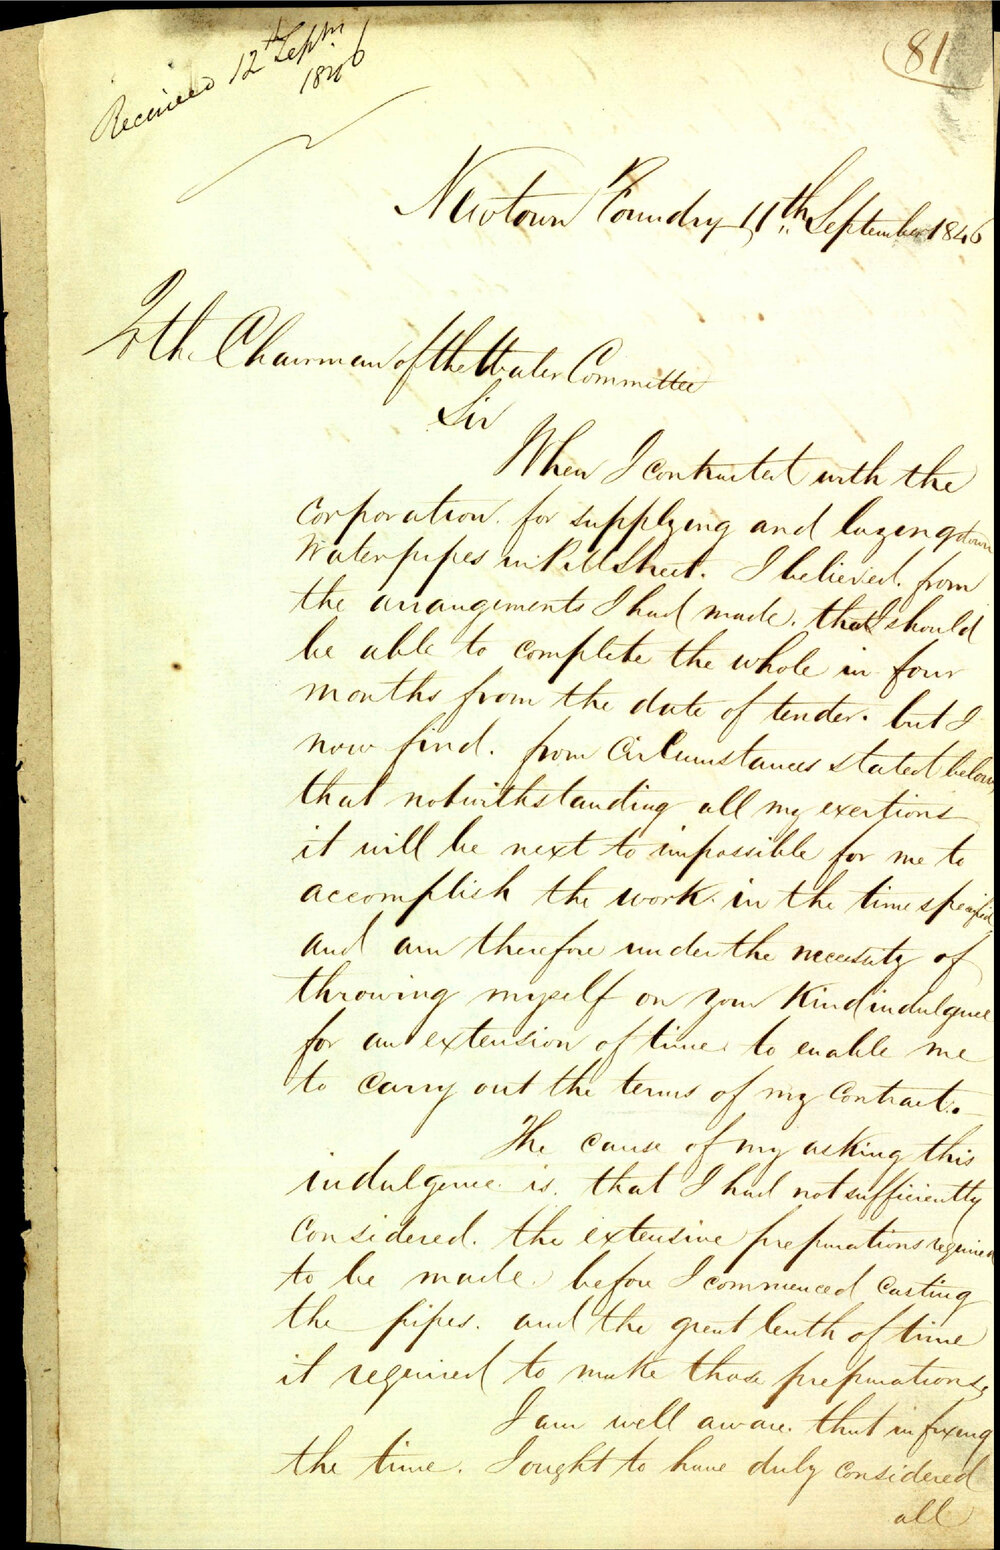 Received 12th Septr
1846
81
Newtown Foundry 11th September 1846
To the Chairman of the Water Committee
Sir
When I contracted with the
corporation. for supplying and laying down
Water pipes in Pitt Street. I believed. from
the arrangements I had made. that I should
be able to complete the whole in four
months from the date of tender. but I
now find. from Circumstances stated below,
that notwithstanding all my exertions
it will be next to impossible for me to
accomplish the work. in the time specified
and am therefore under the necessity of
throwing myself on your Kind indulgence
for an extension of time to enable me
to carry out the terms of my contract.
The cause of my asking this
indulgence is. that I had not sufficiently
Considered. the extensive preparations required
to be made. before I commenced casting
the pipes. and the great lenth of time
it required to make those preparations,
I am well aware. that in fixing
the time. I ought to have duly considered
all